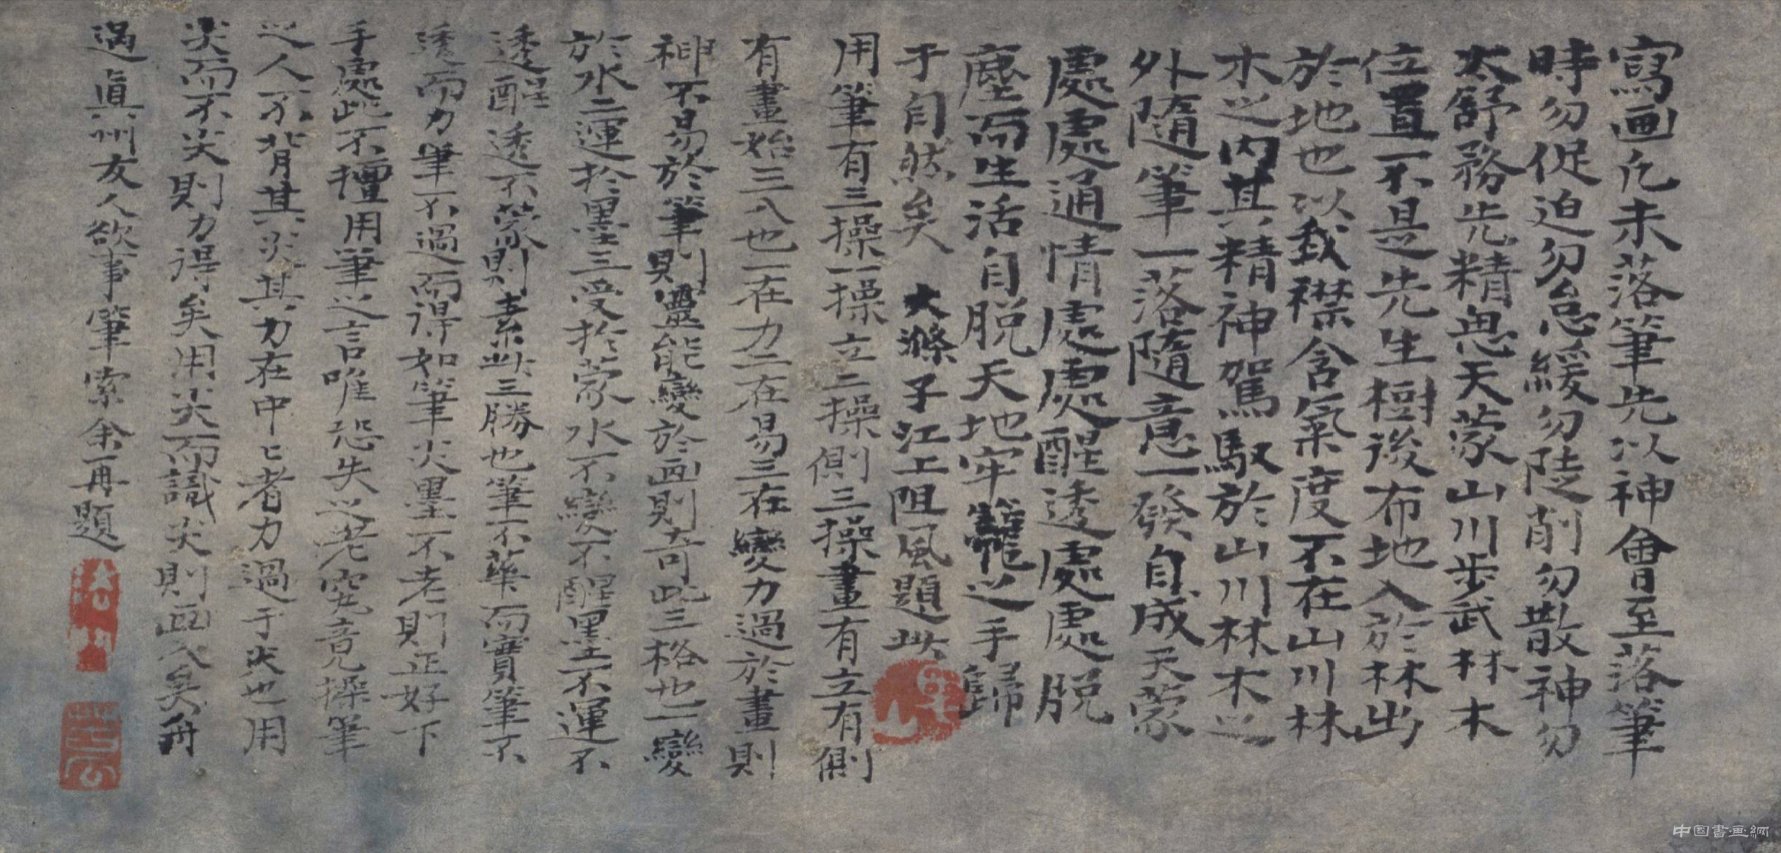 寫画凢未落筆先以神會至落筆
時勿促迫勿怠緩勿陡削勿散神勿
太舒務先精思天蒙山川步武林木
位置不是先生樹後布地入於林出
於地也以我襟含氣度不在山川林
木之內其精神駕馭於山川林木之
外隨筆一落隨意一發自成天蒙
處處通情處處醒透處處脱
塵而生活自脱天地牢籠之手歸
于自然矣 大滌子江上阻風題此
用筆有三操一操立二操側三操畫有立有側
有畫始三入也一在力二在易三在變力過於畫則
神不易於筆則靈能變於画則奇此三格也一變
於水二運於墨三受於蒙水不變不醒墨不運不
透醒透不蒙則素此三勝也筆不華而實筆不
透而力筆不過而得如筆尖墨不老則正好下
手處此不擅用筆之言唯恐失之老究竟操筆
之人不背其尖其力在中中者力過于尖也用
尖而不尖則力得矣用尖而識尖則画入矣舟
過真州友人欲事筆索余再題
中国書画網